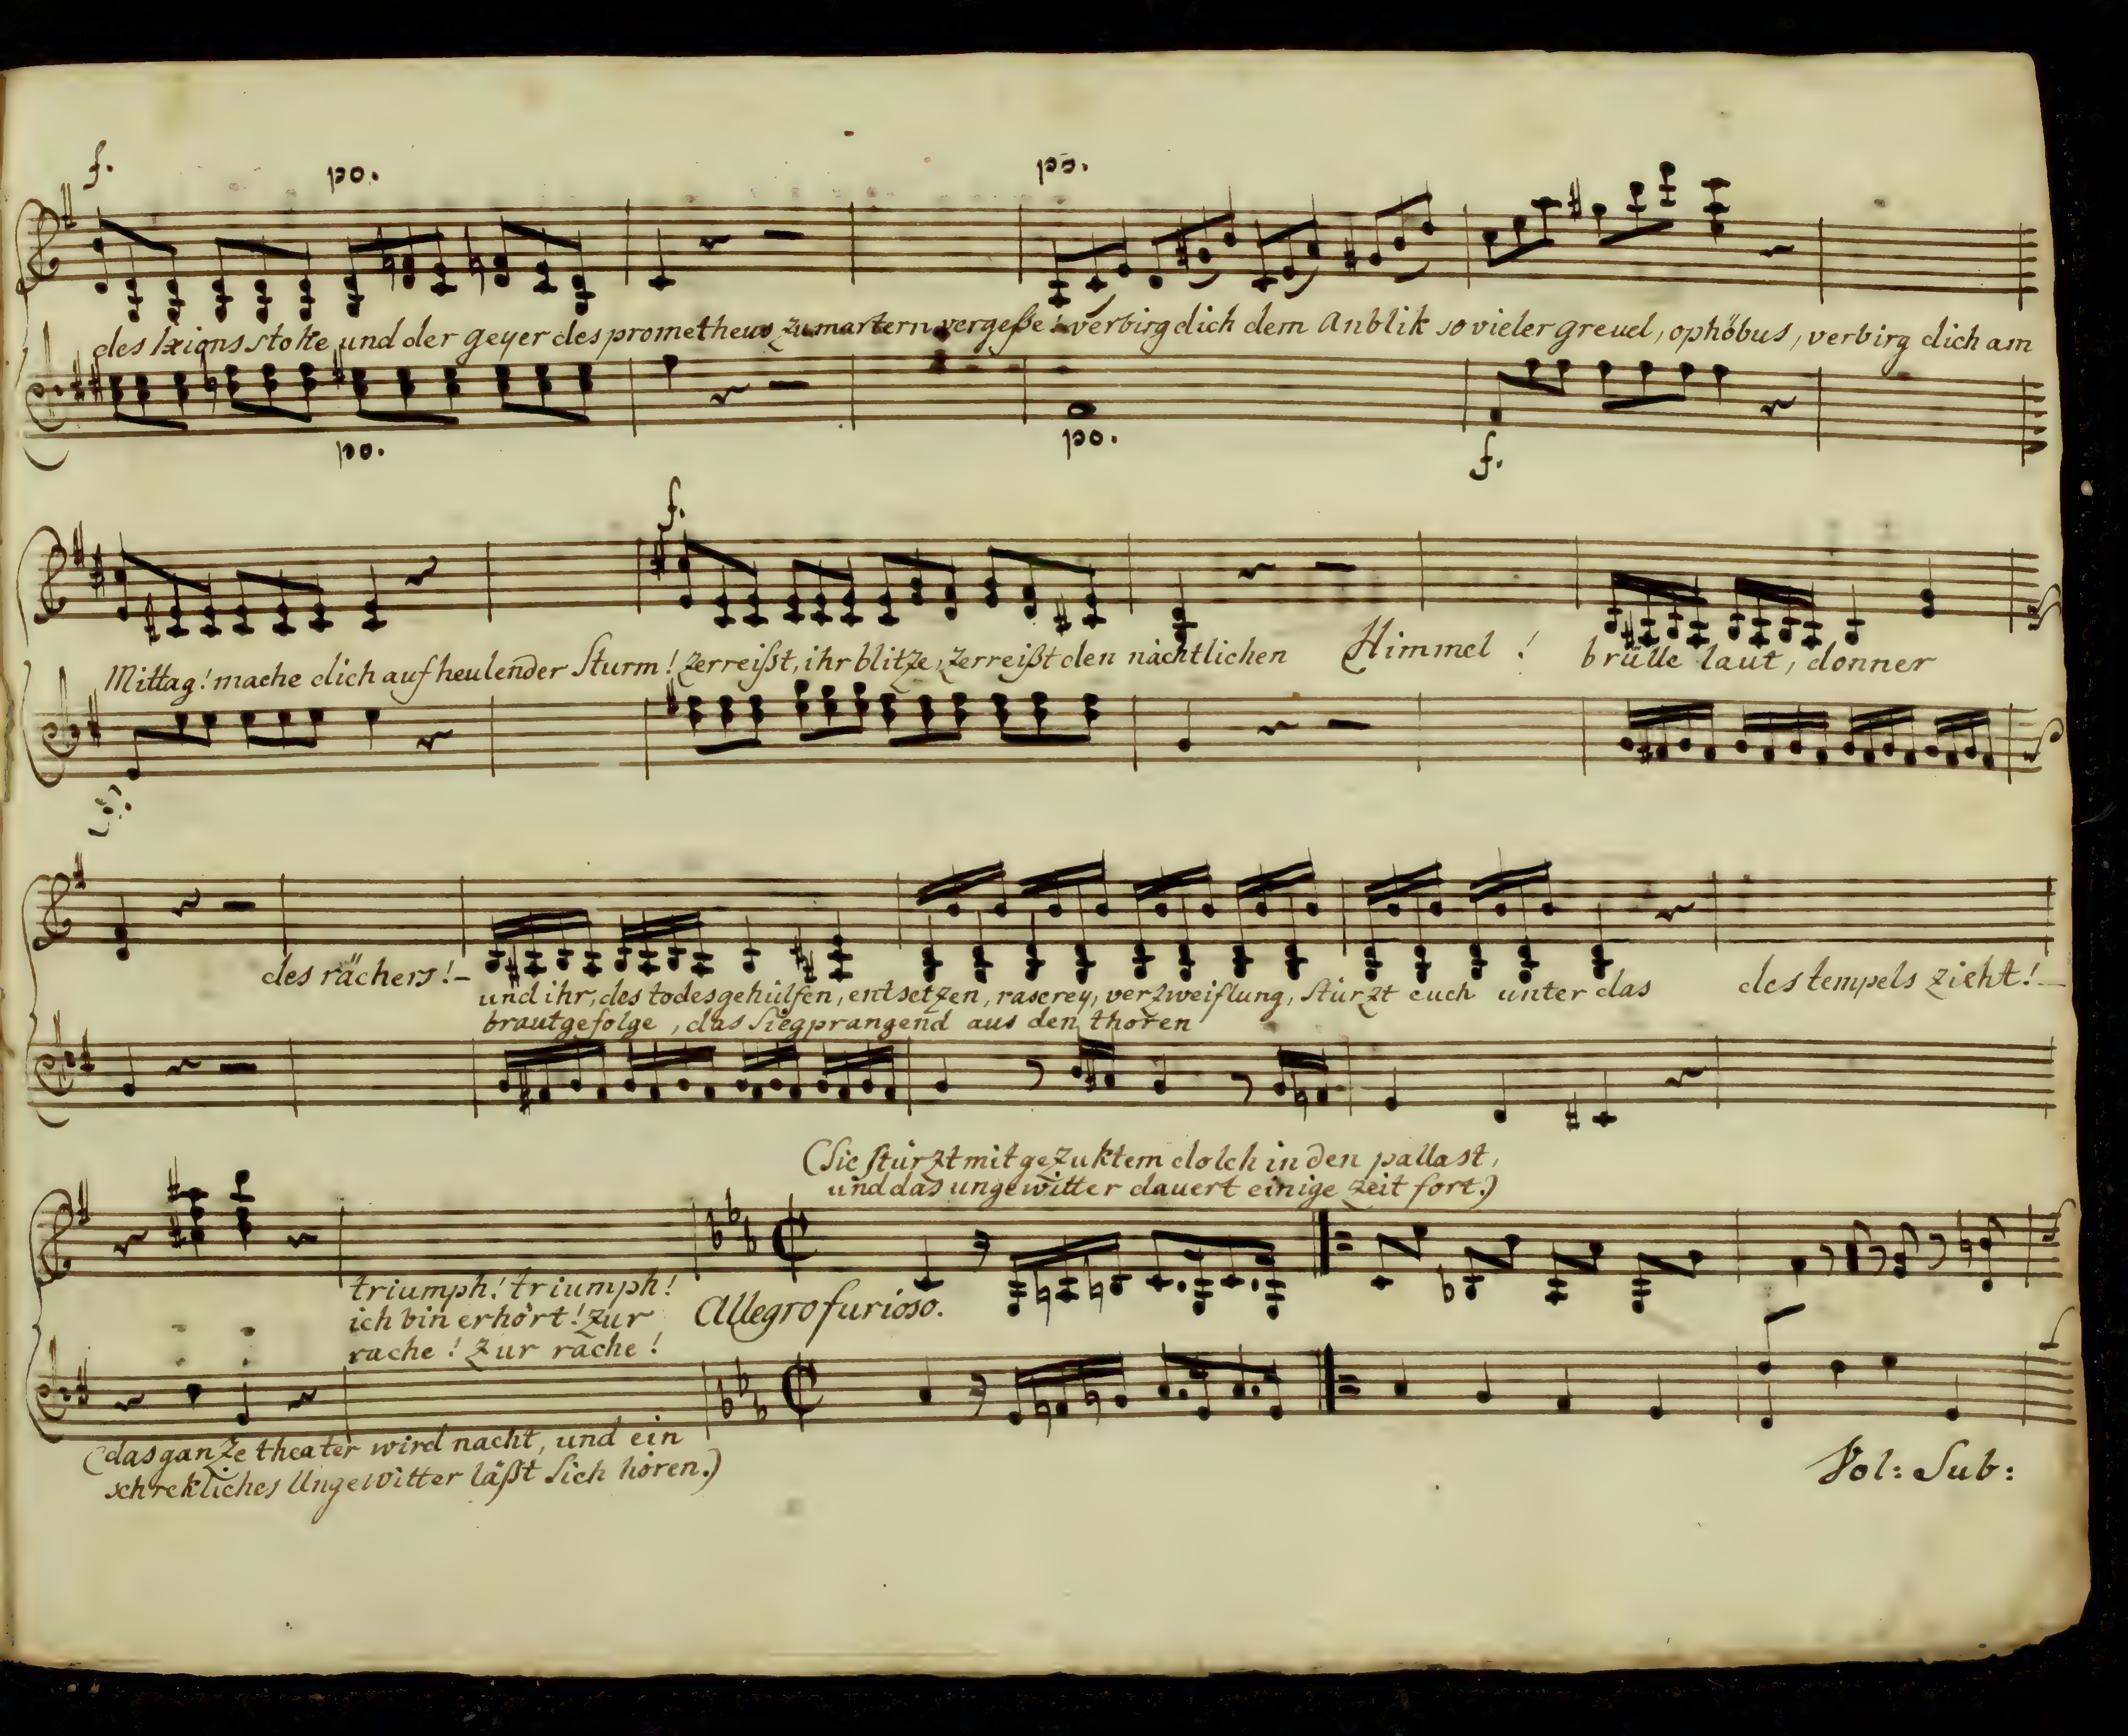 f. po. po.
des Ixions stoke und der geyer des prometheus zu martern vergeße! verbirg dich dem Anblik so vieler greuel, o phöbus, verbirg dich am
po. po. f.
f.
Mittag! mache dich auf heulender Sturm! zerreißt, ihr blitze, zerreißt den nächtlichen Himmel! brülle laut, donner
des rächers!-
und ihr, des todesgehülfen, entsetzen, raserey, verzweiflung, stürzt euch unter das des tempels zieht!-
brautgefolge, das siegprangend aus den thoren
(Sie stürzt mit gezuktem dolch in den pallast,
und das ungewitter dauert einige zeit fort.)
triumph! triumph!
ich bin erhört! zur
rache! zur rache!
Allegro furioso.
(das ganze theater wird nacht, und ein
schrekliches Ungewitter läßt sich hören.)
Vol: Sub: